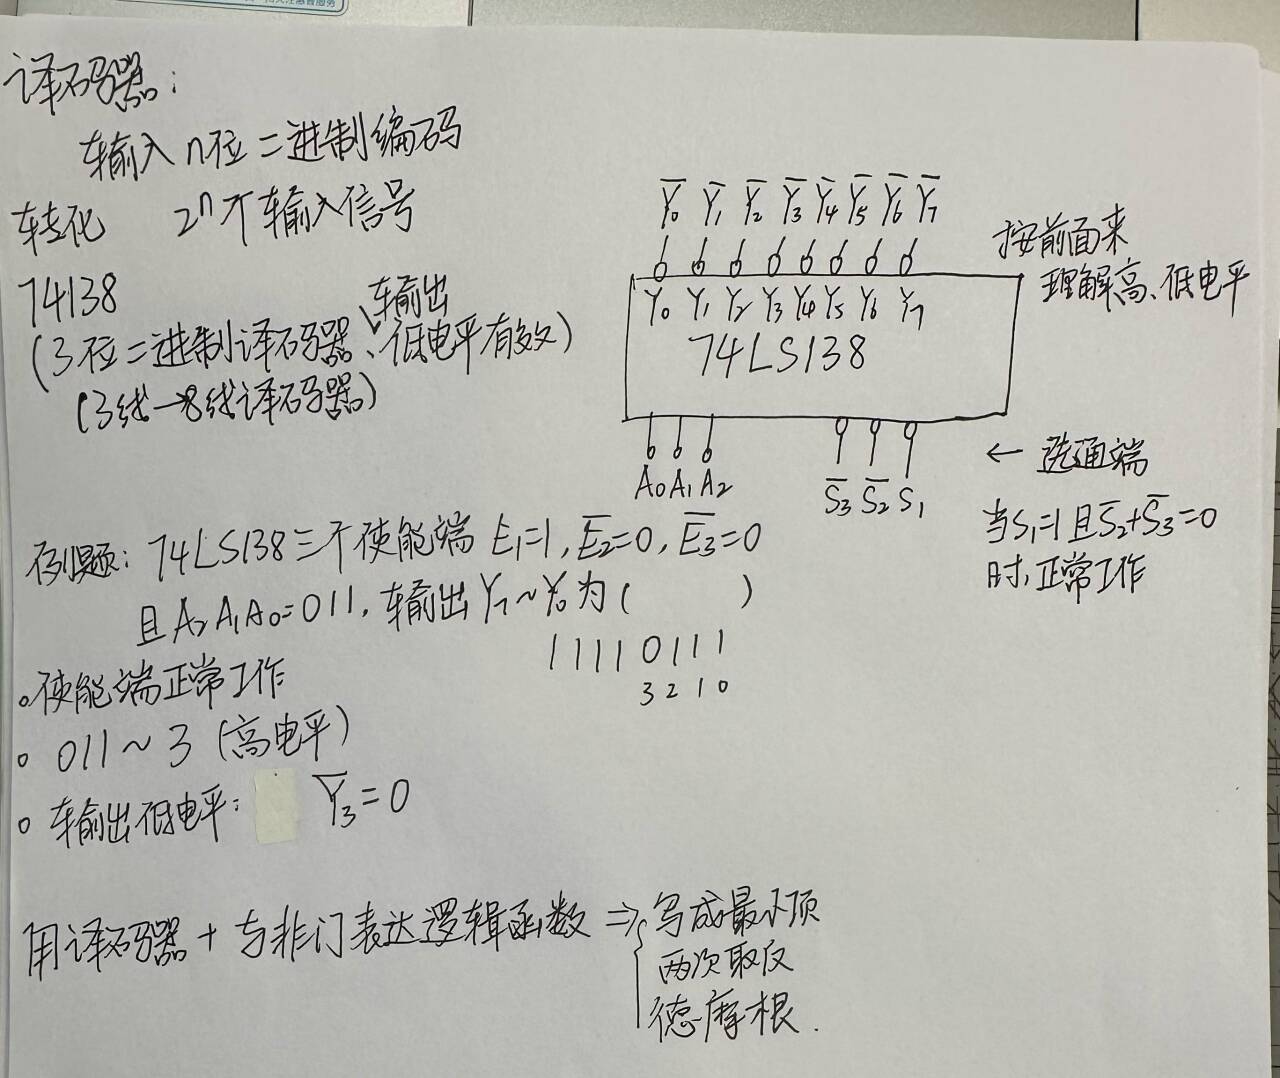 译码器:
输入n位二进制编码
转化 2ⁿ个输入信号
74138
(3位二进制译码器、输出低电平有效)
(3线→8线译码器)
Y̅₀ Y̅₁ Y̅₂ Y̅₃ Y̅₄ Y̅₅ Y̅₆ Y̅₇
Y₀ Y₁ Y₂ Y₃ Y₄ Y₅ Y₆ Y₇
74LS138
A₀ A₁ A₂ S̅₃ S̅₂ S₁
按前面来
理解高、低电平
← 选通端
当S₁=1且S̅₂+S̅₃=0
时,正常工作
例题: 74LS138三个使能端 E₁=1, E̅₂=0, E̅₃=0
且A₂A₁A₀=011, 输出Y₇~Y₀为( )
11110111
3 2 1 0
。使能端正常工作
。011~3 (高电平)
。输出低电平: Y̅₃=0
用译码器+与非门表达逻辑函数 ⇒ { 写成最小项
两次取反
德·摩根.